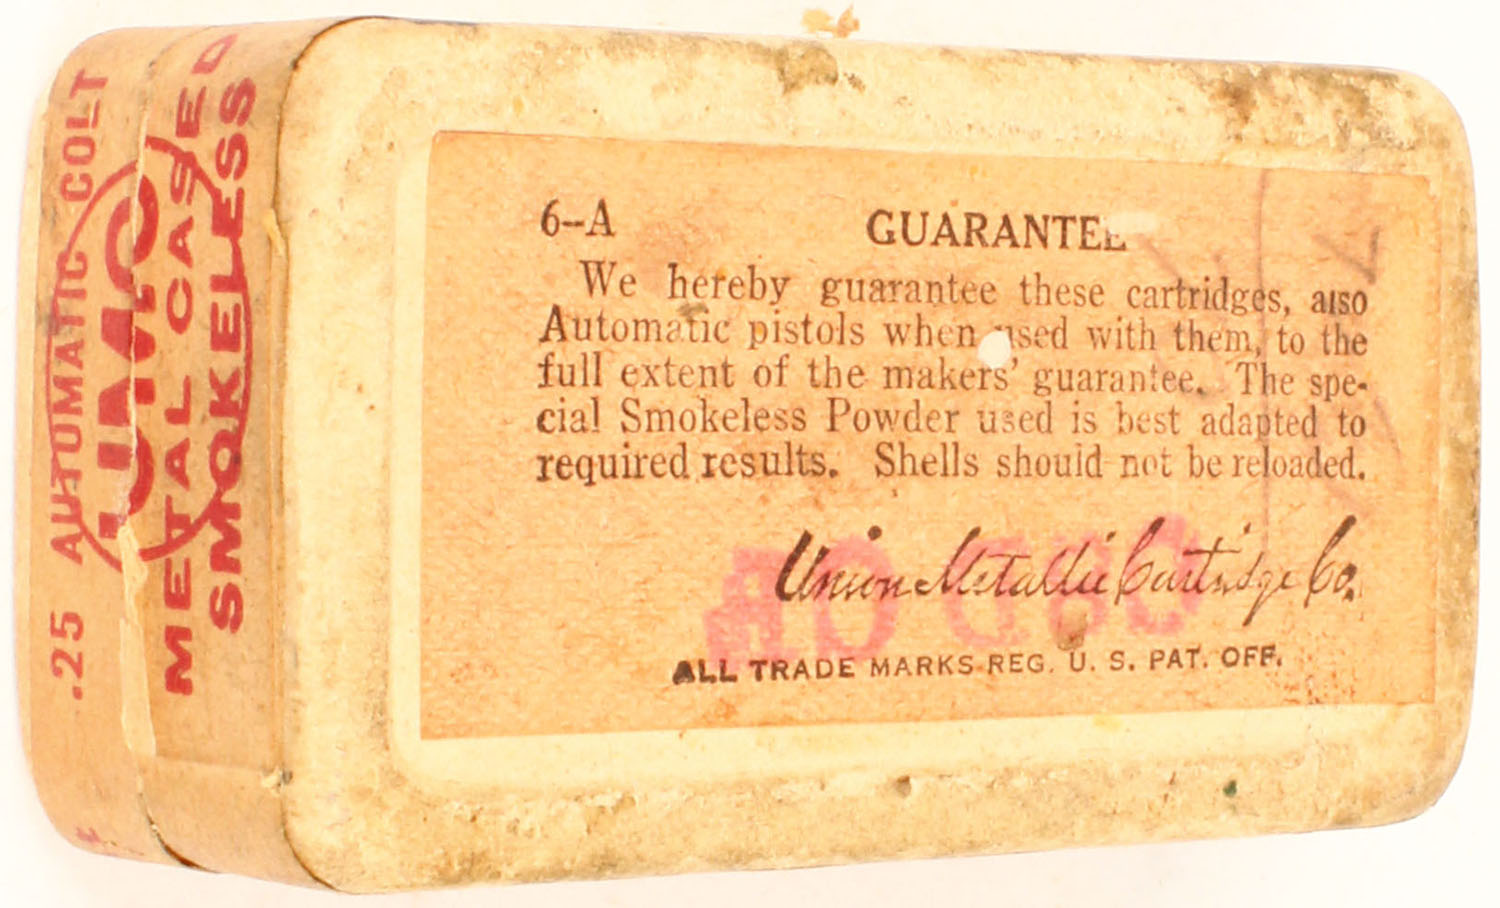 .25 AUTOMATIC COLT
UMC
METAL CASED
SMOKELESS
6–A GUARANTEE
We hereby guarantee these cartridges, also
Automatic pistols when used with them, to the
full extent of the makers' guarantee. The spe-
cial Smokeless Powder used is best adapted to
required results. Shells should not be reloaded.
Union Metallic Cartridge Co.
ALL TRADE MARKS REG. U. S. PAT. OFF.